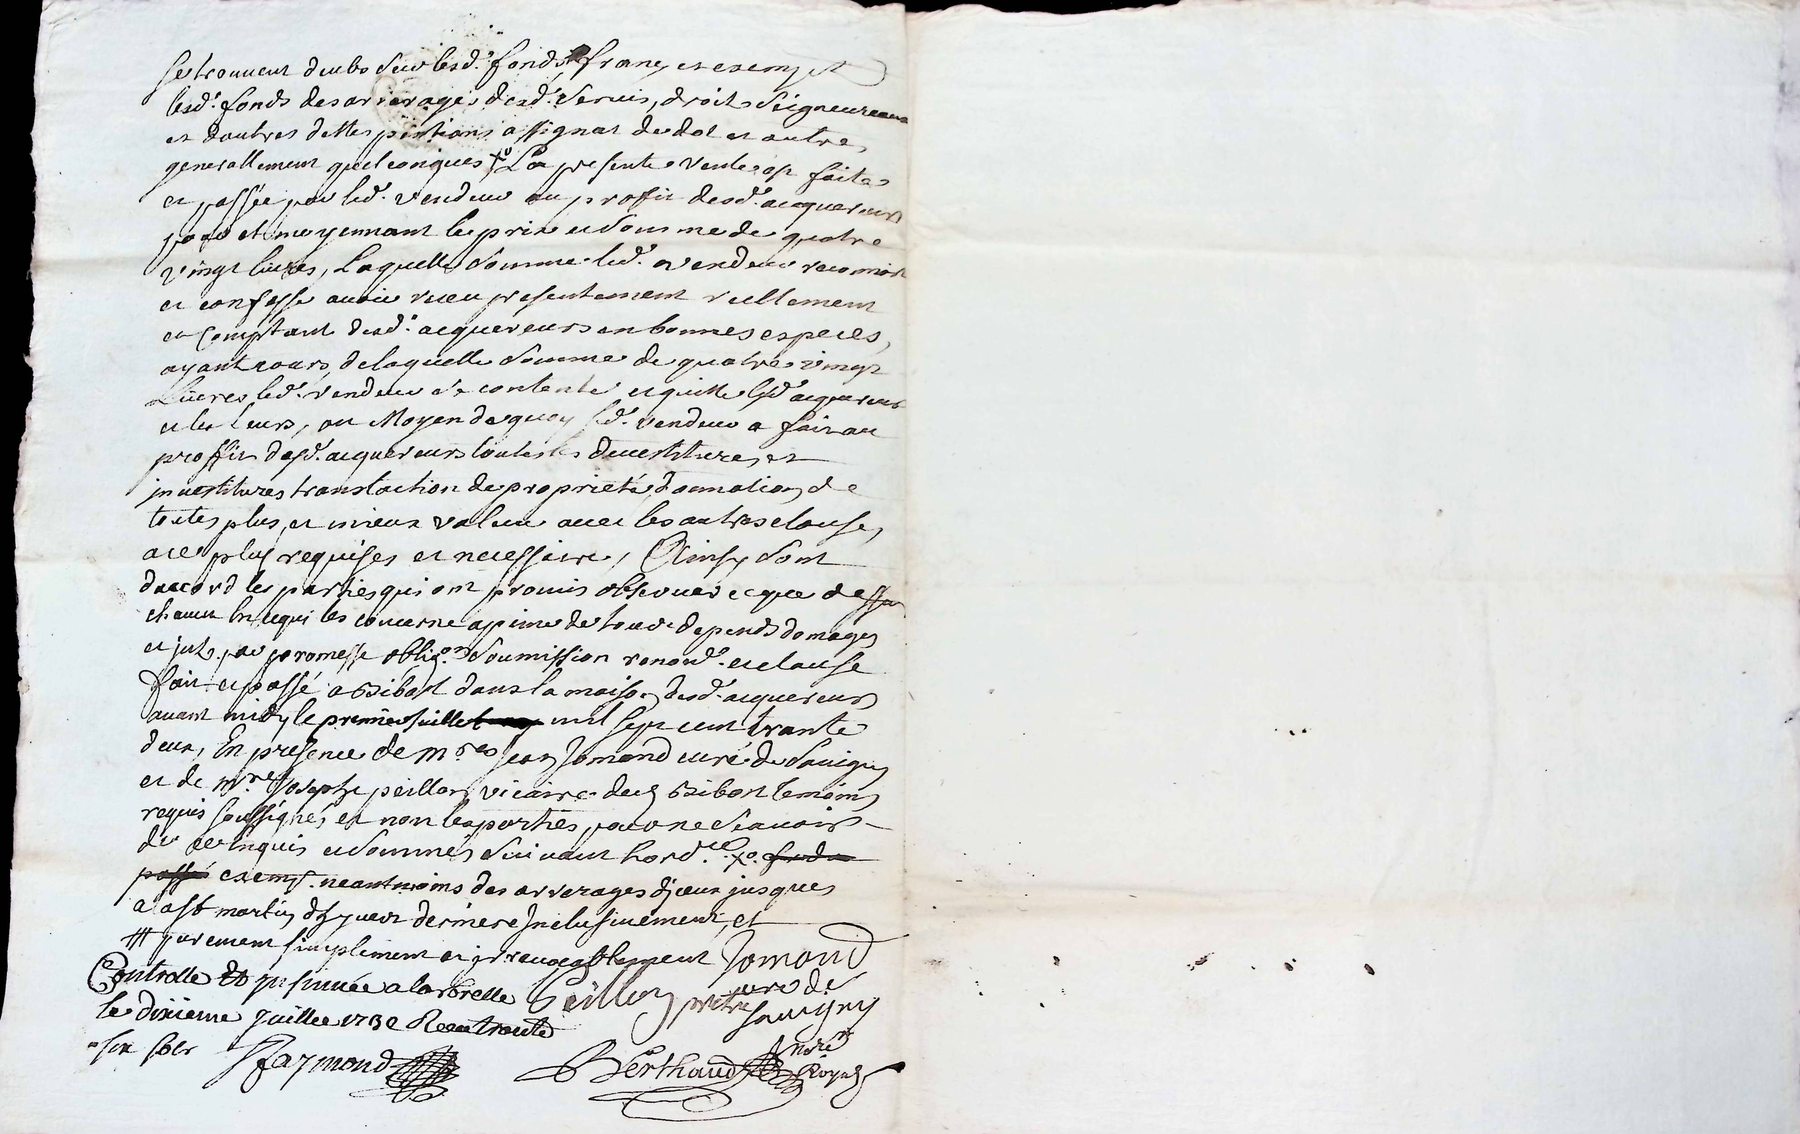 se trouvent deubs sur lesd. fonds, franc et exempt
lesd. fonds des arrerages desd. servis, droits seigneuriaux
et d'autres dettes pentions assignat de dot et autres
generallement quelconques x° La presente vente est faite
et passée par led. vendeur au proffit desd. acquereurs
pour et moyennant le prix et somme de quatre
vingt livres, laquelle somme led. vendeur reconnoit
et confesse avoir receu presentement reellement
et comptant desd. acquereurs en bonnes especes,
ayant cours, de laquelle somme de quatre vingt
Livres led. vendeur se contente et quitte lesd. acquereurs
et les leurs, au Moyen de quoy led. vendeur a fait au
proffit desd. acquereurs toutes les devestitures, et
investitures translaction de proprieté, donnation de
toutes plus, et mieux value avec les autres clauses,
a ce plus requises et necessaire, Ainsy sont
daccord les parties qui ont promis observer ce que dessus
chacun en ce qui les concerne a peine de tous depends domages
et jnts. par promesse oblig.on soumission renon.on et clause
fait et passé a Bibost dans la maison desd. acquereurs
avant midy le premier juillet mil sept cent trante
deux, En presence de m.re Jean Jomand curé de Savigny
et de m.re Joseph peillon vicaire dud. Bibost temoins
requis soussignés et non les parties pour ne scavoir
de ce enquis et sommés suivant l'ord.ce x°.
exempt neantmoins des arrerages d'jceux jusques
a la st martin d'hyver derniere Inclusivement, et
purement simplement et jrrevocablement Jomand
curé de
Savigny
Controllé et jnsinué a Larbresle Peillon pretre
le dixieme Juillet 1732 Receu trante
six sols Faymond
Berthaud André
Royal